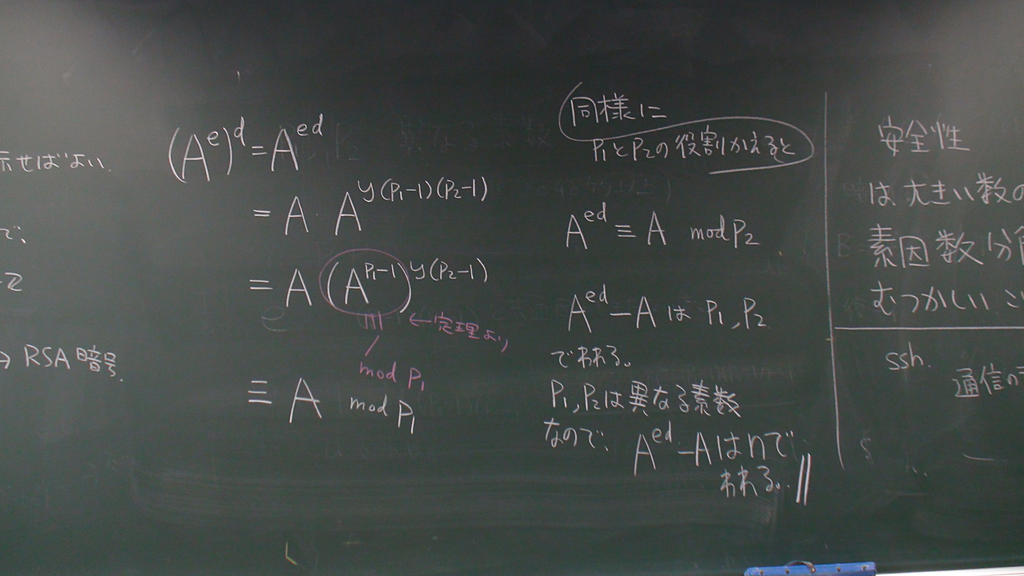 示せばよい
で、
→ RSA暗号.
(A^e)^d = A^{ed}
= A · A^{y(P₁-1)(P₂-1)}
= A (A^{P₁-1})^{y(P₂-1)}
||| ← 定理より
/
mod P₁
≡ A mod P₁
同様に
P₁とP₂の役割かえると
A^{ed} ≡ A mod P₂
A^{ed} - A は P₁, P₂
でわれる。
P₁, P₂は異なる素数
なので、 A^{ed} - A は n で
われる。 //
安全性
は大きい数の
素因数分解
むつかしい こ
ssh.
通信の